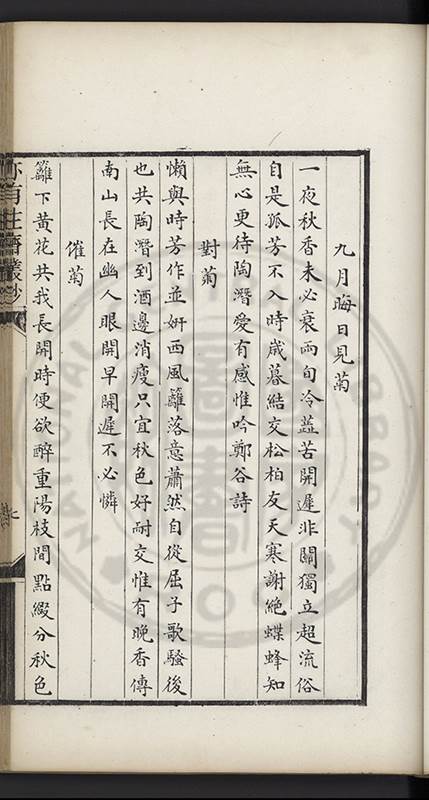 九月晦日見菊
一夜秋香未必衰兩旬冷蕋苦開遲非關獨立超流俗
自是孤芳不入時歲暮結交松柏友天寒謝絶蝶蜂知
無心更待陶潛愛有感惟吟鄭谷詩
對菊
懶與時芳作並妍西風籬落意蕭然自從屈子歌騷後
也共陶潛到酒邊消瘦只宜秋色好耐交惟有晚香傳
南山長在幽人眼開早開遲不必憐
催菊
籬下黃花共我長開時便欲醉重陽枝間點綴分秋色
亦有生齋叢鈔